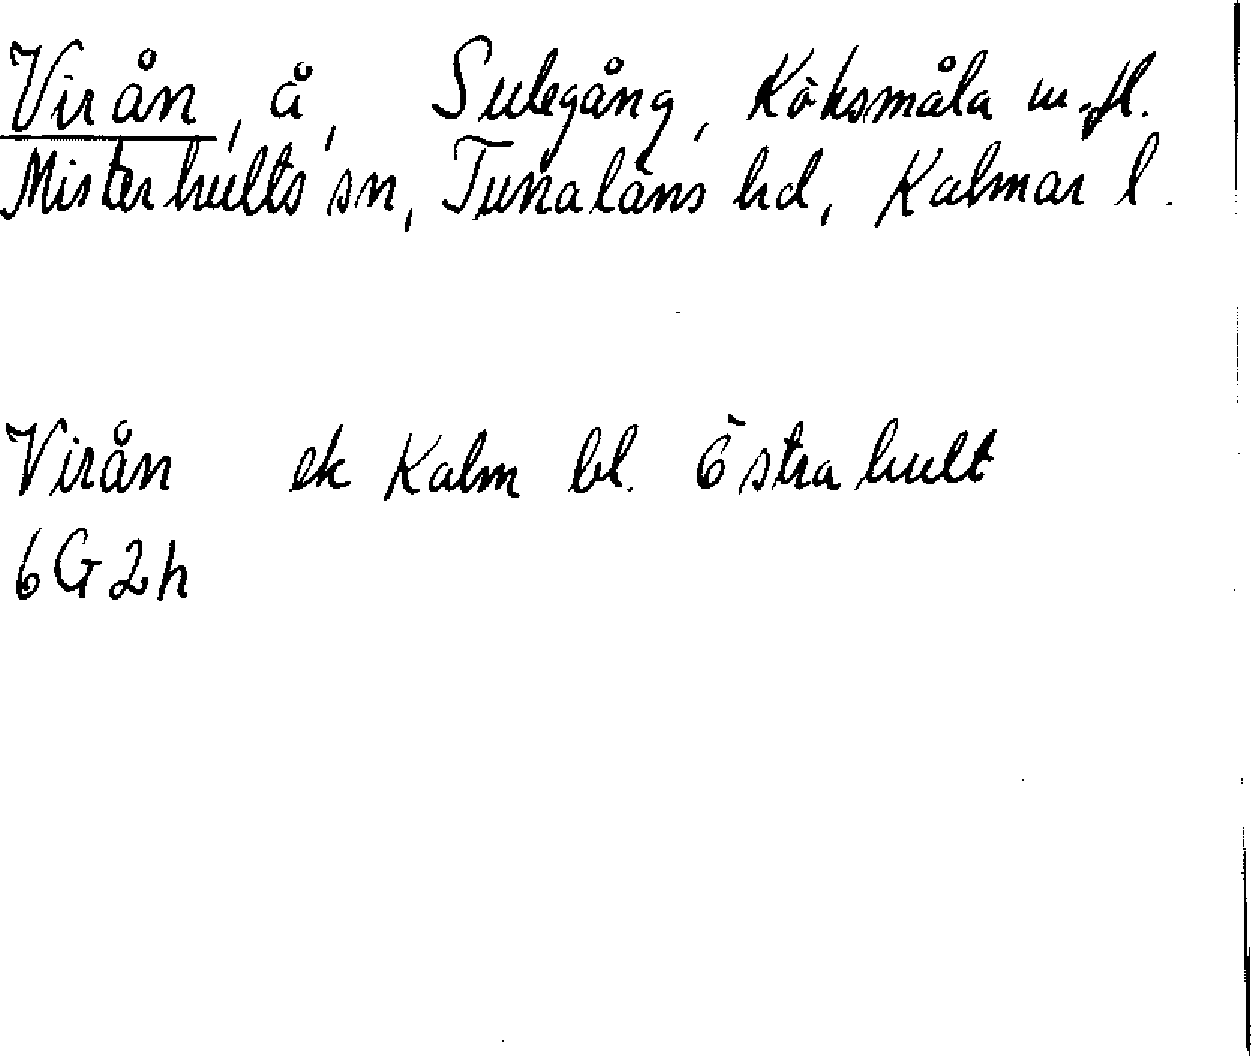 Virån, å, Sulegång, Köksmåla m.fl.
Misterhults sn, Tunaläns hd, Kalmar l.
Virån ek Kalm bl. Östrahult
6G2h